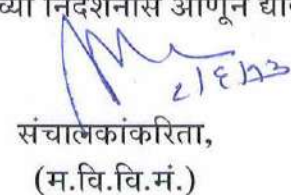 निदर्शनास आणून
२/६/२३
संचालकांकरिता,
(म.वि.वि.मं.)